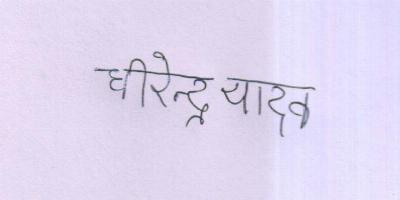 धीरेन्द्र यादव